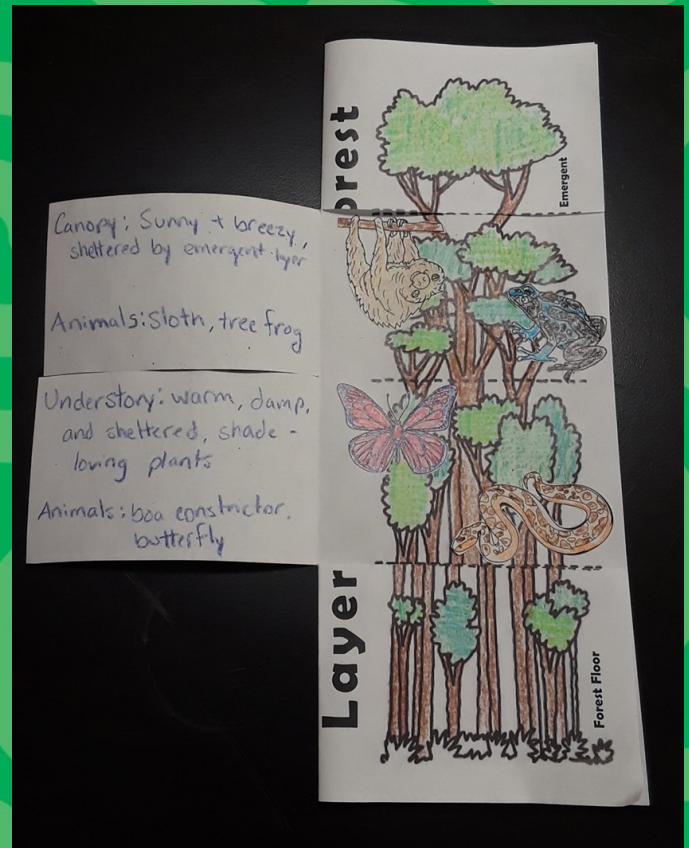 orest
Emergent
Canopy: Sunny + breezy,
sheltered by emergent layer
Animals: Sloth, tree frog
Understory: warm, damp,
and sheltered, shade-
loving plants
Animals: boa constrictor.
butterfly
Layer
Forest Floor